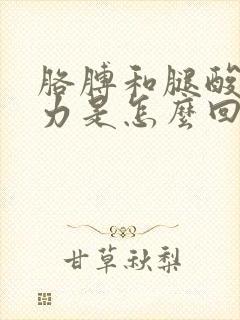 胳膊和腿酸
力是怎麽回
甘草秋梨